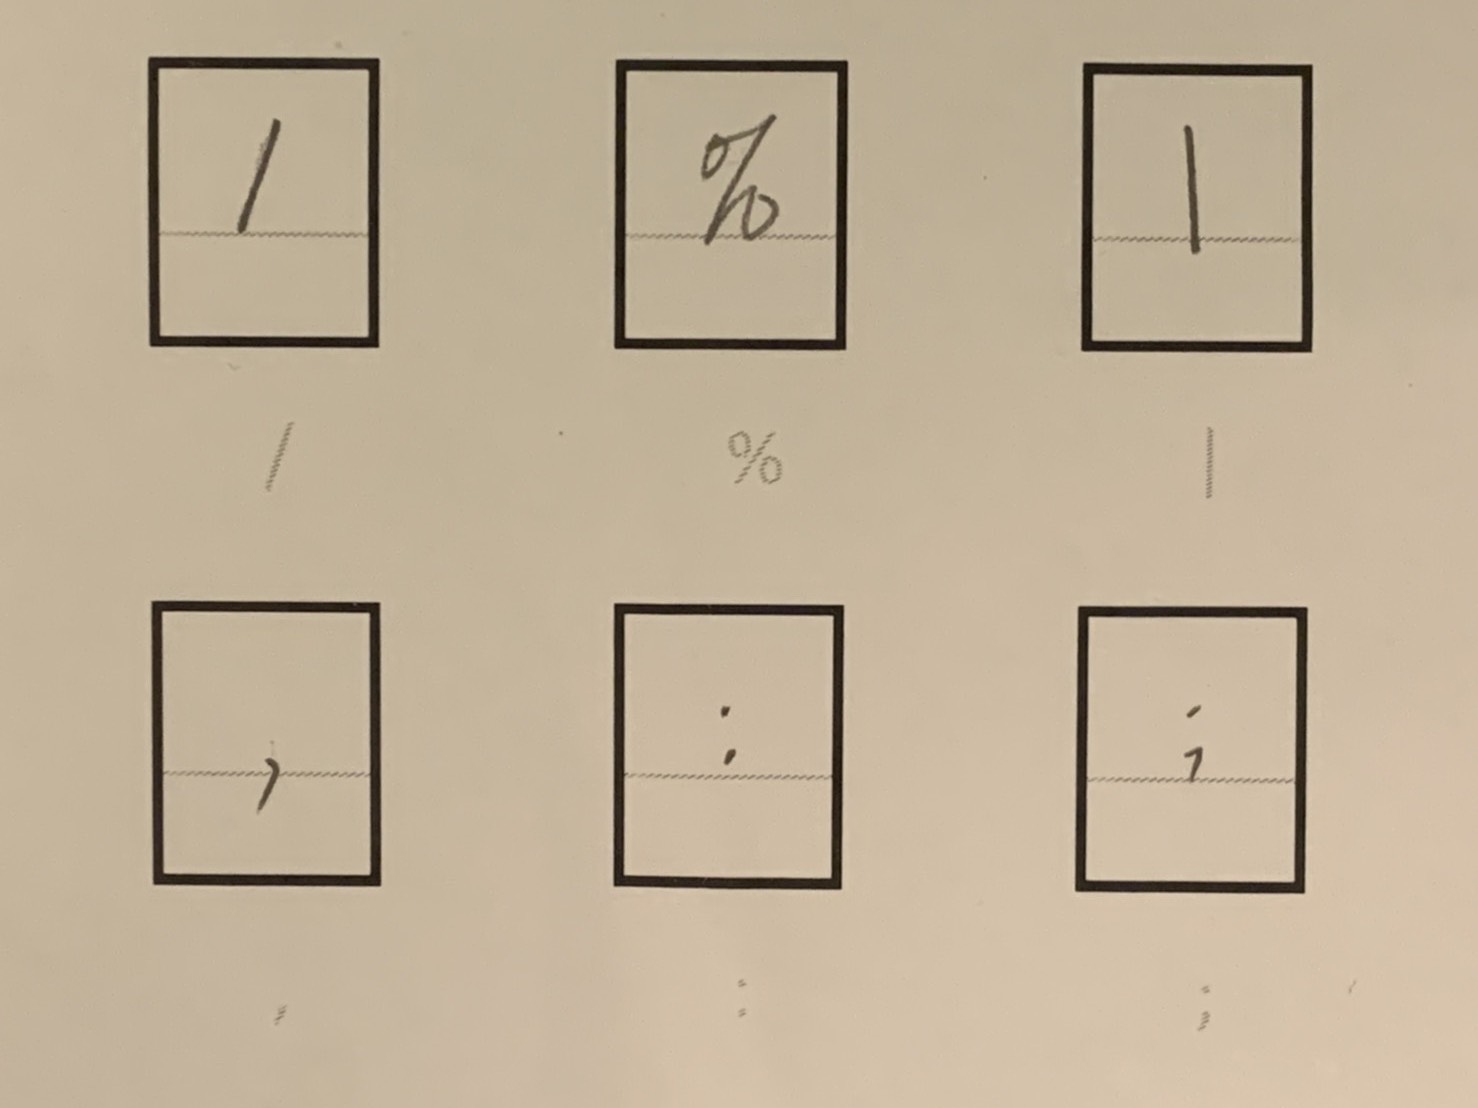 / % |
/ % |
, : ;
, : ;